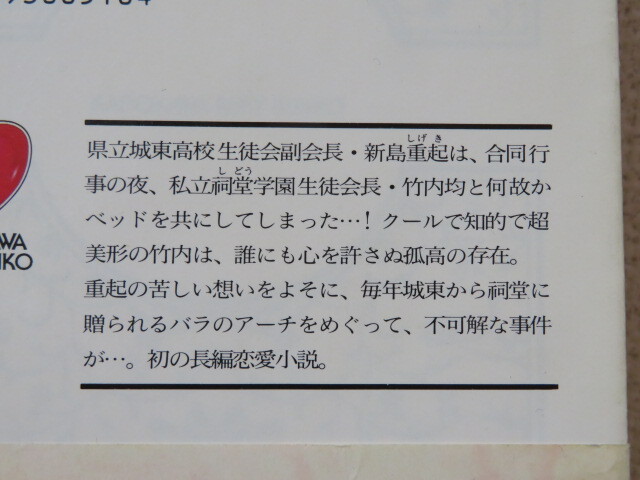 県立城東高校生徒会副会長・新島重起は、合同行
しげき
事の夜、私立祠堂学園生徒会長・竹内均と何故か
しどう
ベッドを共にしてしまった…！クールで知的で超
美形の竹内は、誰にも心を許さぬ孤高の存在。
重起の苦しい想いをよそに、毎年城東から祠堂に
贈られるバラのアーチをめぐって、不可解な事件
が…。初の長編恋愛小説。